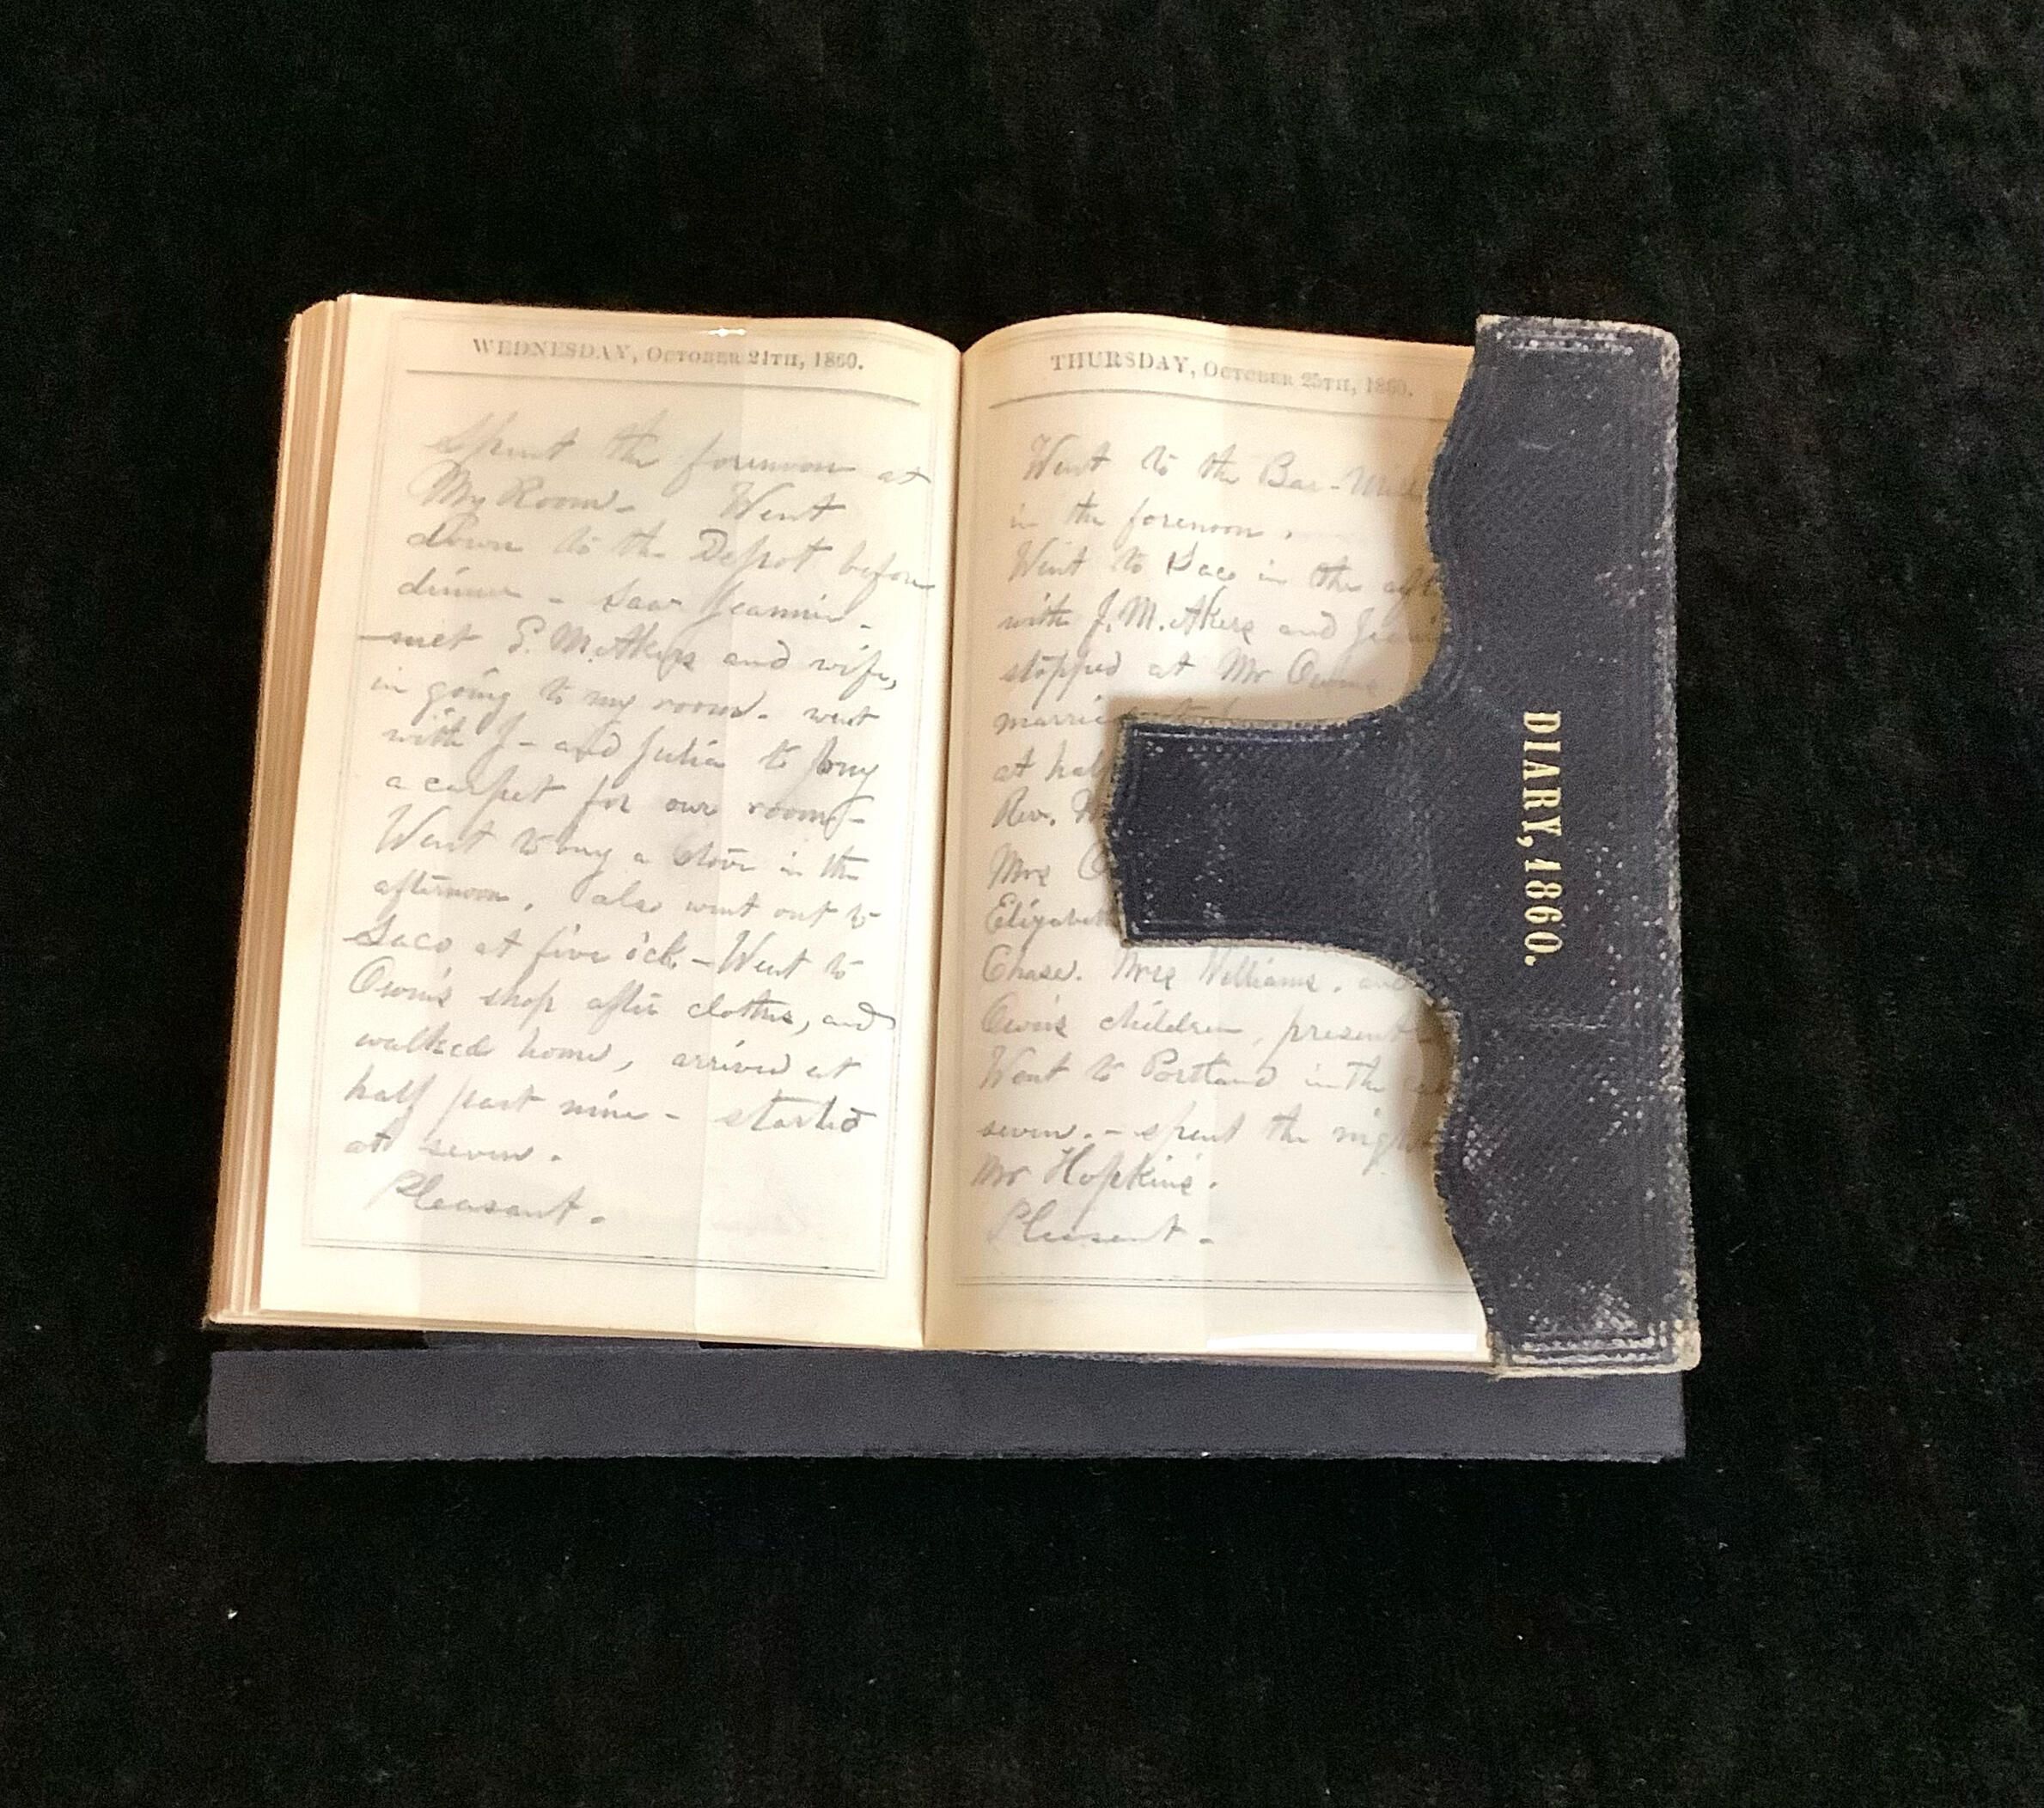 WEDNESDAY, OCTOBER 24TH, 1860.
Spent the forenoon at
My Room - Went
down to the Depot before
dinner - saw Jeannie -
met S. M. Akers and wife,
in going to my room - went
with J - and Julia to buy
a carpet for our room -
Went to buy a stove in the
afternoon. I also went out to
Saco at five o'ck - Went to
Owen's shop after clothes, and
walked home, arrived at
half past nine - started
at seven.
Pleasant.
THURSDAY, OCTOBER 25TH, 1860.
Went to the Bar-Mill
in the forenoon,
Went to Saco in the aft
with J. M. Akers and
stopped at Mr Owens
married
at half
Rev.
Mrs
Elizabeth
Chase. Mrs Williams. and
Owens children, present
Went to Portland in the
seven. - spent the night
Mr Hopkins.
Pleasant -
DIARY, 1860.